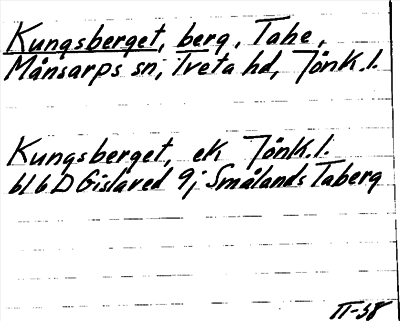 Kungsberget, berg, Tahe,
Månsarps sn, Tveta hd, Jönk.l.
Kungsberget, ek Jönk.l.
bl 6 D Gislaved 9j Smålands Taberg
II-38